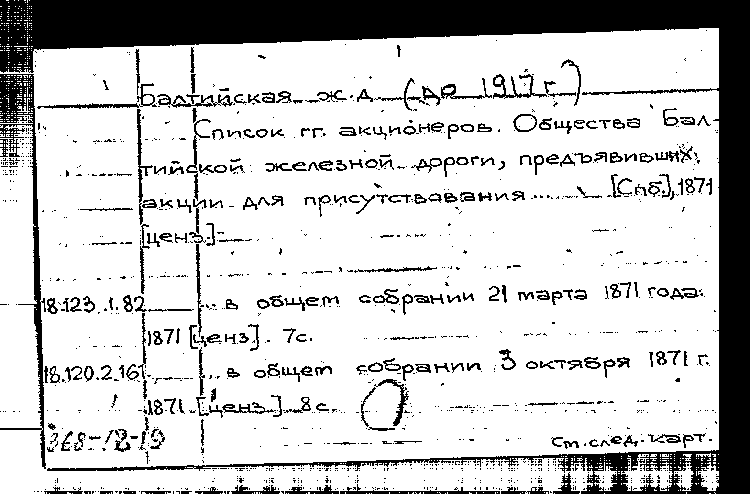 Балтийская ж.д. (до 1917 г.)
Список гг. акционеров. Общества Бал-
тийской железной дороги, предъявивших
акции для присутствавания ... [Спб.], 1871
[ценз.]:
18.123.1.82 ... в общем собрании 21 марта 1871 года.
1871 [ценз]. 7с.
18.120.2.161 ... в общем собрании 3 октября 1871 г.
1871 [ценз.] 8с.
368-18-19
См. след. карт.